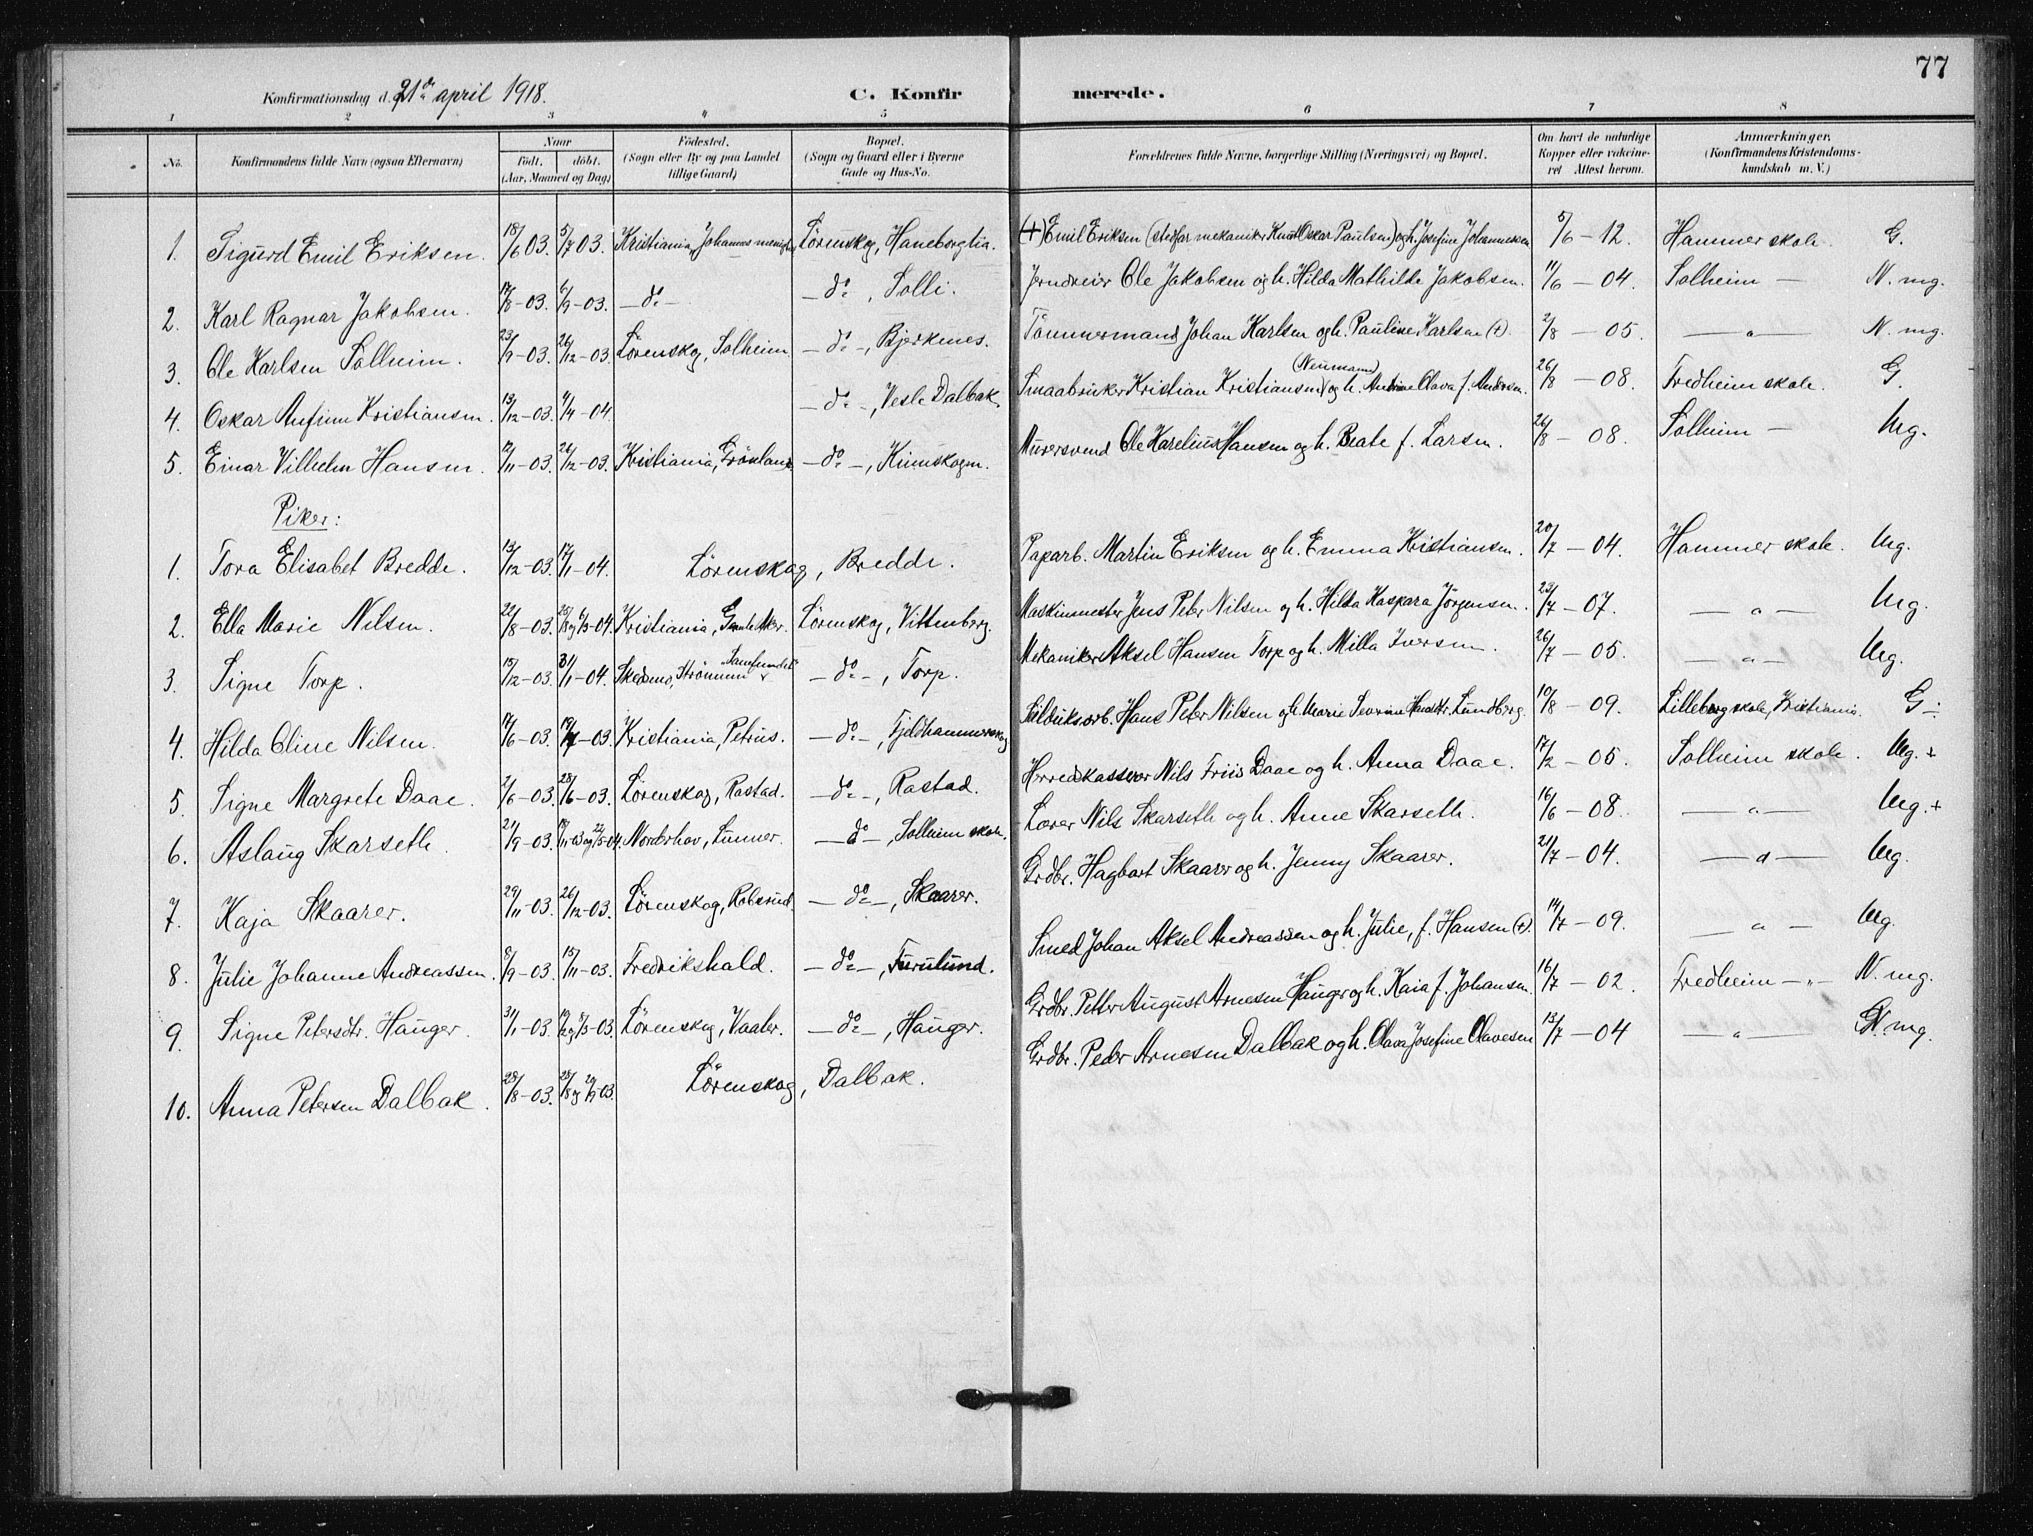 77
Konfirmationsdag d. 21de april 1918. C. Konfirmerede.
1 2 3 4 5 6 7 8
No. Konfirmandens fulde Navn (ogsaa Efternavn) Naar født. døbt. (Aar, Maaned og Dag) Fødested. (Sogn eller By og paa Landet tillige Gaard) Bopæl. (Sogn og Gaard eller i Byerne Gade og Hus-No. Forældrenes fulde Navne, borgerlige Stilling (Næringsvei) og Bopæl. Om havt de naturlige Kopper eller vakcineret Attest herom. Anmærkninger. (Konfirmandens Kristendomskundskab m. V.)
1. Sigurd Emil Eriksen. 18/6 03. 5/7 03. Kristiania, Johannes menigh. Lørenskog, Haneborglia. (+) Emil Eriksen (stedfar mekaniker Knut Oskar Paulsen) og h. Josefine Johannesen 5/6 - 12. Hammer skole. G.
2. Karl Ragnar Jakobsen. 17/8 - 03. 6/9 - 03. - do - - do -, Solli. Jerndreier Ole Jakobsen og h. Hilda Mathilde Jakobsen. 11/6 - 04. Solheim - N. mg.
3. Ole Karlsen Solheim. 23/9 - 03. 26/12 - 03 Lørenskog, Solheim. - do -, Bjerknes. Tømmermand Johan Karlsen og h. Pauline Karlsen (+). 2/8 - 05. - " - N. mg.
4. Oskar Anfinn Kristiansen. 13/12 - 03. 4/4 - 04 - do -, Vesle Dalbak. Smaabruker Kristian Kristiansen (Neumann) og h. Antine Olava f. Andersen. 26/8 - 08. Fredheim skole. G.
5. Einar Vilhelm Hansen. 12/11 - 03. 26/12 - 03. Kristiania, Grønland. - do -, Kinnskogen. Murersvend Ole Karelius Hansen og h. Beate f. Larsen. 26/8 - 08. Solheim - Mg.
Piker:
1. Tora Elisabet Bredde. 13/12 - 03. 17/1 - 04. Lørenskog, Bredde. Paparb. Martin Eriksen og h. Emma Kristiansen. 20/7 - 04. Hammer skole. Mg.
2. Ella Marie Nilsen. 22/8 - 03. 25/8 og 6/3 - 04. Kristiania, Gamle Aker. Lørenskog, Vittenberg. Maskinmester Jens Peter Nilsen og h. Hilda Kaspara Jörgensen. 23/7 - 07. - " - Mg.
3. Signe Torp. 15/12 - 03. 31/1 - 04. Skedsmo, Strømmen "Samfundet" - do -, Torp. Mekaniker Aksel Hansen Torp og h. Milla Iversen. 26/7 - 05. - " - Mg.
4. Hilda Oline Nilsen. 14/6 - 03. 19/7 - 03. Kristiania, Petrus. - do -, Fjeldhammerskog Hans Peter Nilsen og h. Marie Severine Hansdtr. Lundberg. 10/8 - 09. Lilleborg skole, Kristiania. G -:
5. Signe Margrete Daae. 2/6 - 03. 28/6 - 03. Lørenskog, Rastad. - do -, Rastad. Herredskasserer Nils Friis Daae og h. Anna Daae. 17/2 - 05. Solheim skole. Mg. +
6. Aslaug Skarseth. 21/9 - 03. 18/11 - 03 og 22/5 - 04. Norderhov, Lunner. - do -, Solheim skole. Lærer Nils Skarseth og h. Anne Skarseth. 16/6 - 08. - " - Mg. +
7. Kaja Skaarer. 29/11 - 03. 26/12 - 03. Lørenskog, Robsrud. - do -, Skaarer. Grdbr. Hagbart Skaarer og h. Jenny Skaarer. 21/7 - 04. - " - Mg.
8. Julie Johanne Andreassen. 8/9 - 03. 15/11 - 03. Fredrikshald. - do -, Furulund. Smed Johan Aksel Andreassen og h. Julie, f. Hansen (+). 14/7 - 09. - " - Mg.
9. Signe Petersdtr. Hauger. 31/1 - 03. 5/3 - 03. Lørenskog, Vaaler. - do -, Hauger. Grdbr. Petter August Arnesen Hauger og h. Kaia f. Johansen. 16/7 - 02. Fredheim - " - N. mg.
10. Anna Petersen Dalbak. 28/8 - 03. 28/8 og 20/9 03. Lørenskog, Dalbak. Grdbr. Peder Arnesen Dalbak og h. Olava Josefine Olavesen 13/7 - 04 - " - N. mg.